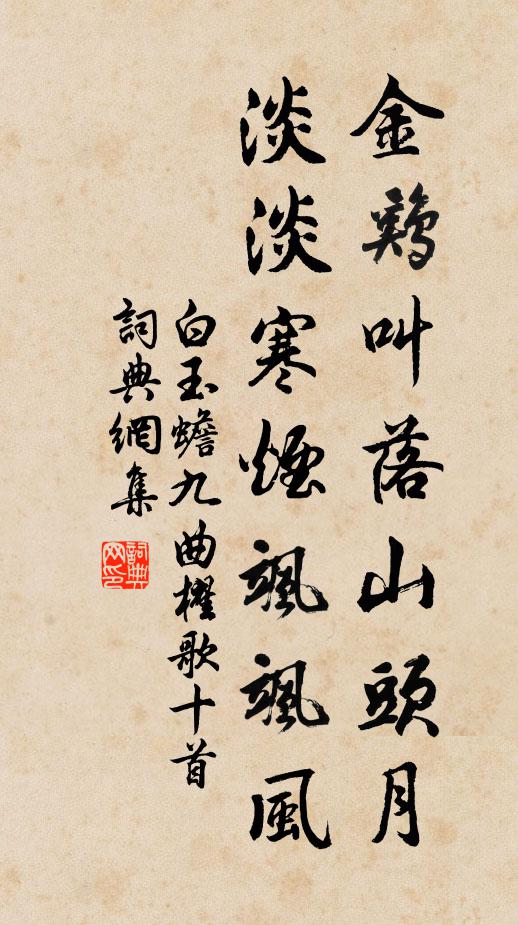 金鷄叫落山頭月
淡淡寒煙颯颯風
白玉蟾九曲櫂歌十首
詞典網集
詞典网印